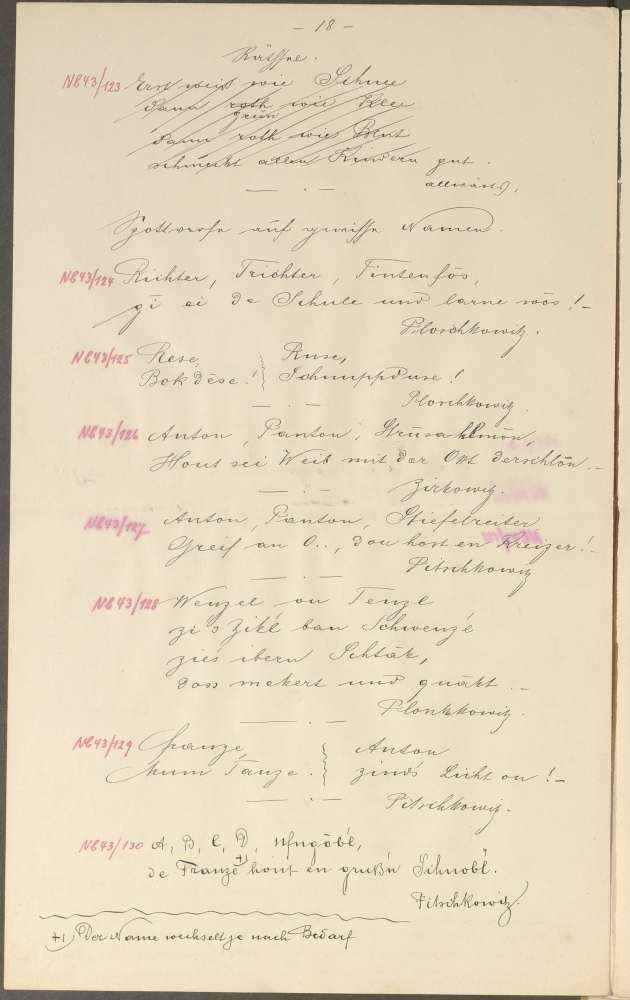 - 18 -
Rätsel.
N843/123 Erst weiß wie Schnee
dann roth wie Klee
grün
dann roth wie Blut
schmeckt allen Kindern gut.
allwärts).
Spottverse auf gewisse Namen.
N843/124 Richter, Trichter, Tintenfös,
gī ei de Schule und larne wös! -
Ploschkowitz.
N843/125 Rese, Ruse,
Bokdēse! Schnuppduse!
Ploschkowitz.
N843/126 Anton, Panton,
Hout sei Weib mit der Ort derschlōn. -
Zirkowitz.
N843/127 Anton, Panton, Stiefelreiter
Greif an O.., dou host en Kreizer! -
Pitschkowitz
N843/128 Wenzel vu Tenzl
zi's Zikl ban Schwenzé
zies ibern Schtāk,
doss mekert und quākt. -
Ploschkowitz.
N843/129 Franze, Anton
Mum Tanze. zind's Licht on! -
Pitschkowitz.
N843/130 A, B, C, D, Ufngōbl,
de Franze +) hout en gruß'n Schnobl.
Pitschkowitz.
+) Der Name wechselt je nach Bedarf